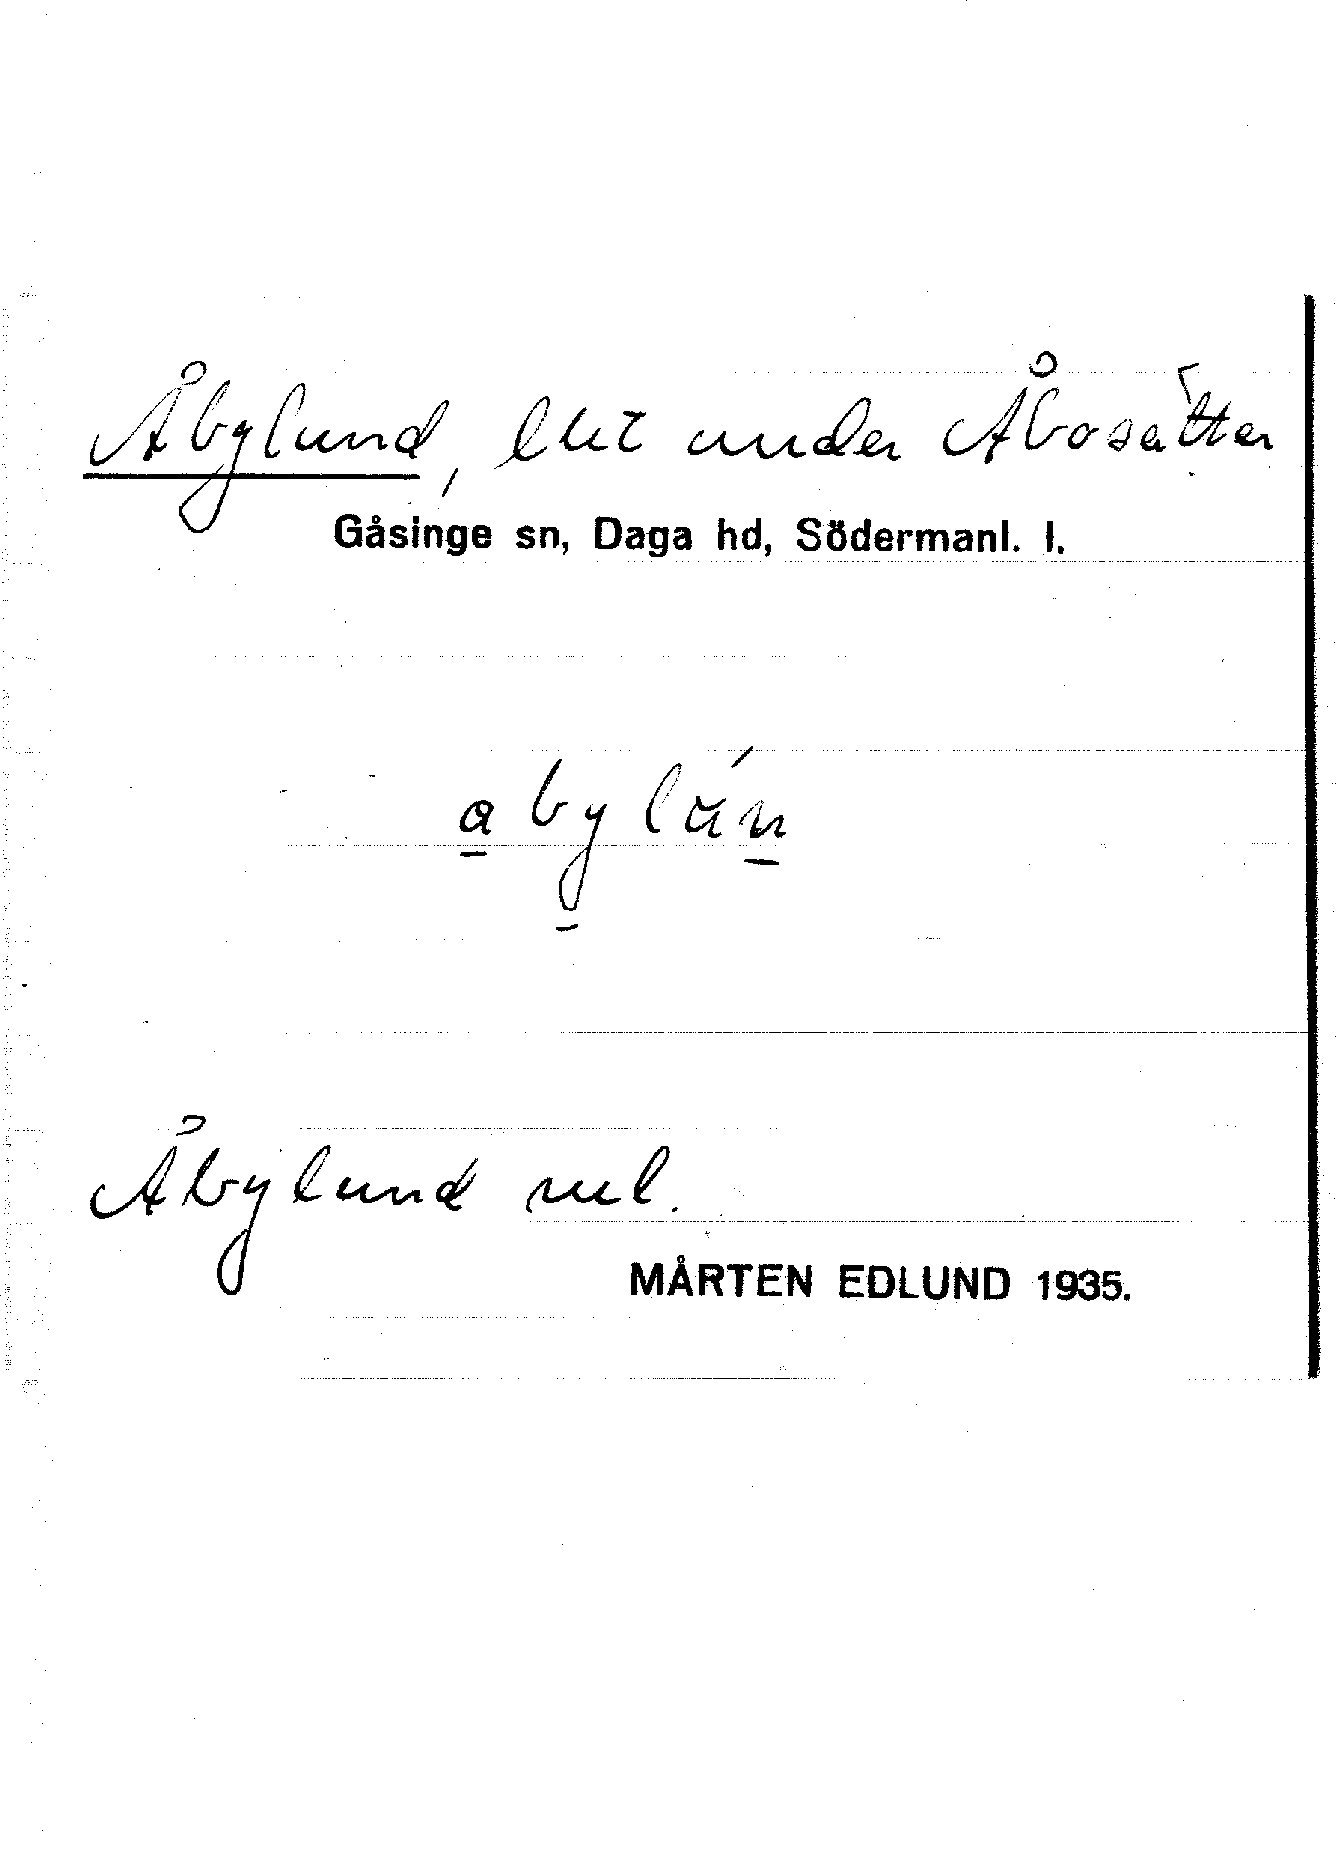 Åbylund, lht under Åbosätter
Gåsinge sn, Daga hd, Södermanl. l.
abylún
Åbylund
MÅRTEN EDLUND 1935.